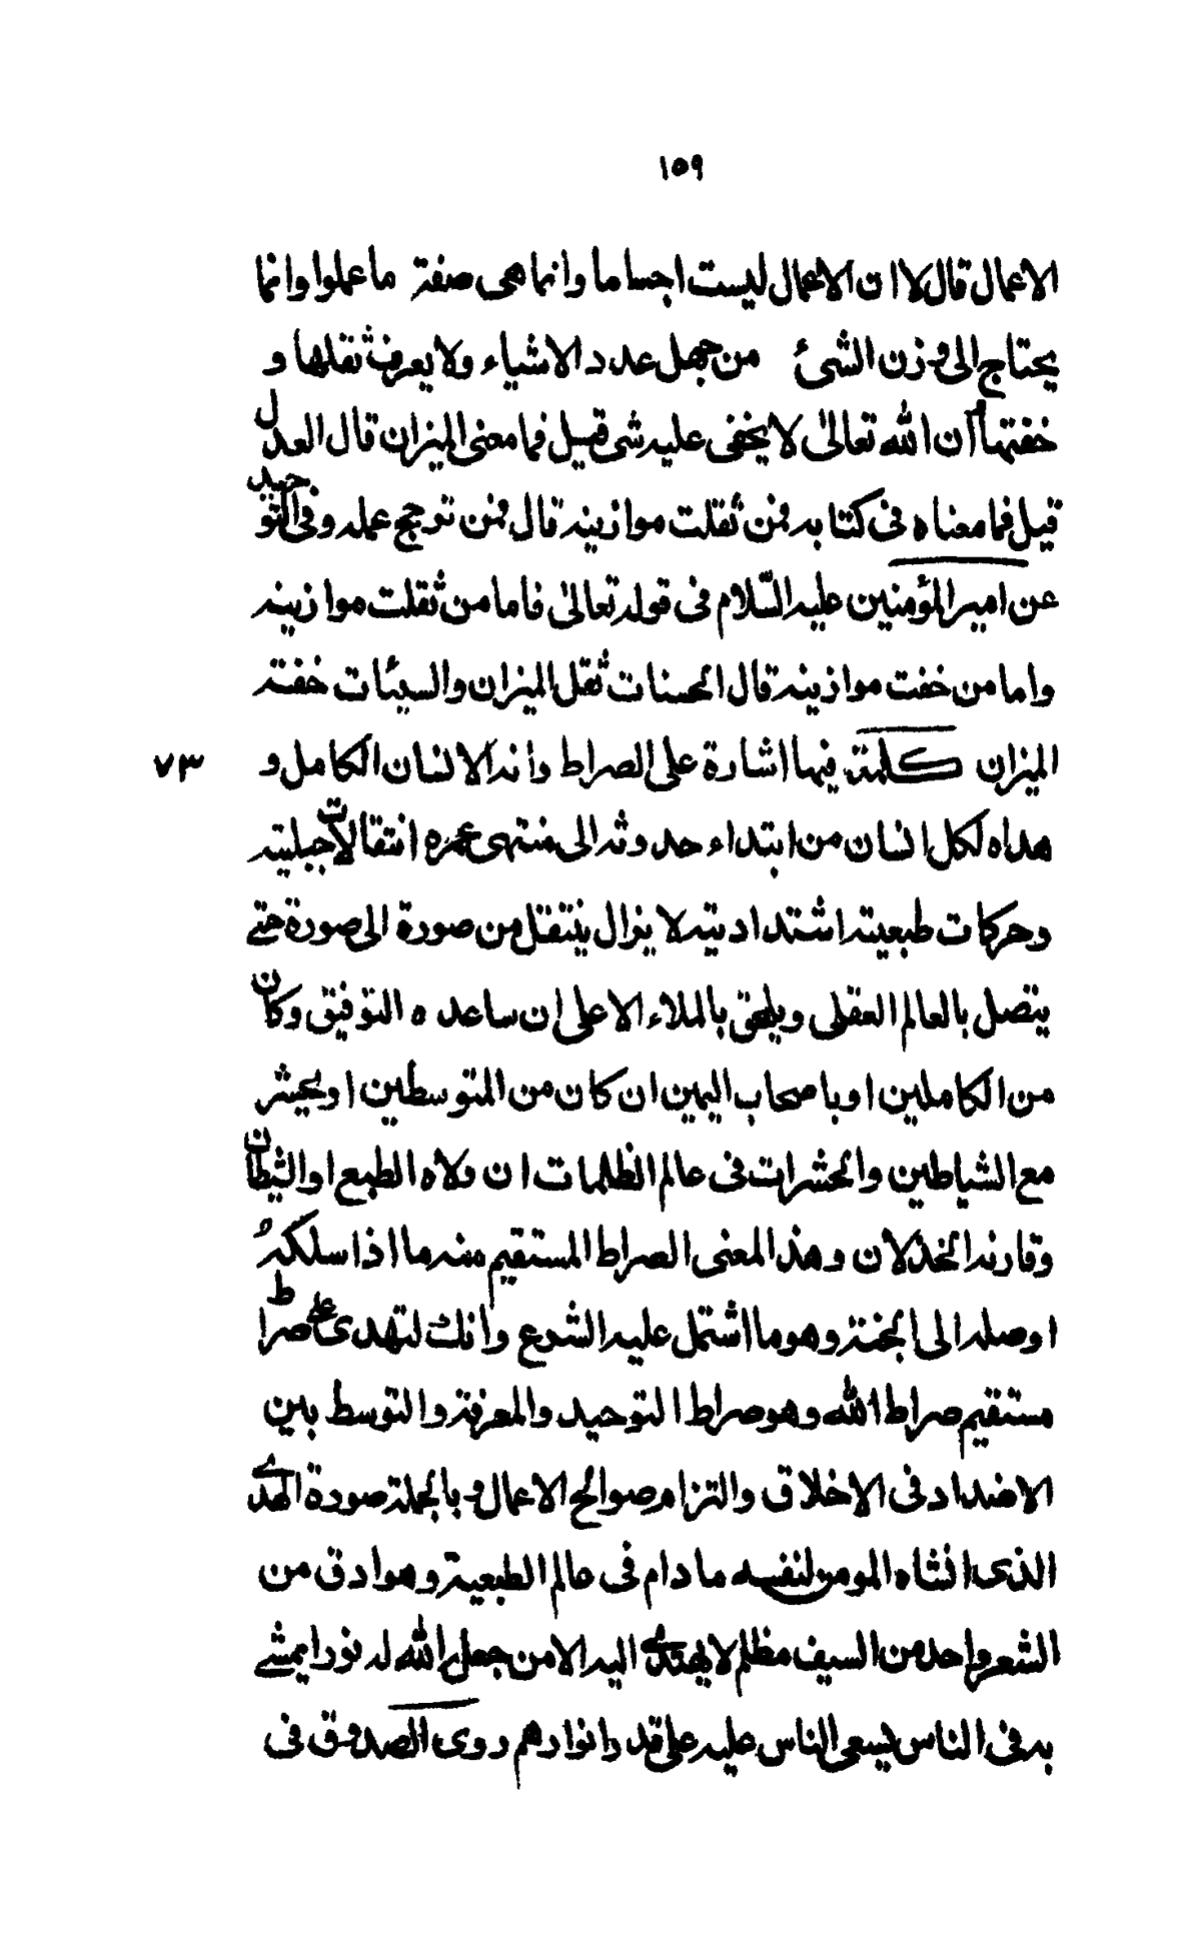 ١٥٩
الاعمال قال لا ان الاعمال ليست اجساما وانما هى صفة ما عملوا وانما
يحتاج الى وزن الشئ من جهل عدد الاشياء ولا يعرف ثقلها و
خفتها أن الله تعالى لا يخفى عليه شى قيل فما معنى الميزان قال العدل
قيل فما معناه فى كتابه فمن ثقلت موازينه قال فمن ترجح عمله وفى التوحيد
عن امير المؤمنين عليه السّلام فى قوله تعالى فاما من ثقلت موازينه
واما من خفت موازينه قال الحسنات ثقل الميزان والسيئات خفة
الميزان كلمة فيها اشارة على الصراط وانه الانسان الكامل و
٧٣
هداه لكل انسان من ابتداء حدوثه الى منتهى عمره انتقالات جبلية
وحركات طبعية اشتدادية لا يزال ينتقل من صورة الى صورة حتے
يتصل بالعالم العقلى ويلحق بالملاء الاعلى ان ساعده التوفيق وكان
من الكاملين او باصحاب اليمين ان كان من المتوسطين او يحشر
مع الشياطين والحشرات فى عالم الظلمات ان ولاه الطبع او الشيطان
وقارنه الخذلان وهذ المعنى الصراط المستقيم منه ما اذا سلكهُ
اوصله الى الجنة وهو ما اشتمل عليه الشرع وانك لتهدى على صراط
مستقيم صراط الله وهو صراط التوحيد والمعرفة والتوسط بين
الاضداد فى الاخلاق والتزام صوالح الاعمال وبالجملة صورة الهدے
الذى انشاه المومن لنفسه ما دام فى عالم الطبعية وهو ادق من
الشعر واحد من السيف مظلم لا يهتدے اليه الا من جعل الله له نورا يمشے
به فى الناس يسعى الناس عليه على قدر انوارهم روى الصدوق فى